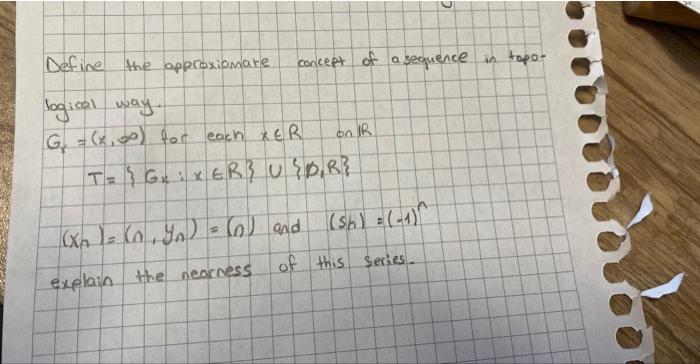 Define the approxiomate concept of a sequence in topo-
logical way.
Gx = (x, ∞) for each x ∈ R on R
T = { Gx : x ∈ R } ∪ { ∅, R }
(xn) = (n, yn) = (n) and (sn) = (-1)^n
explain the nearness of this series.